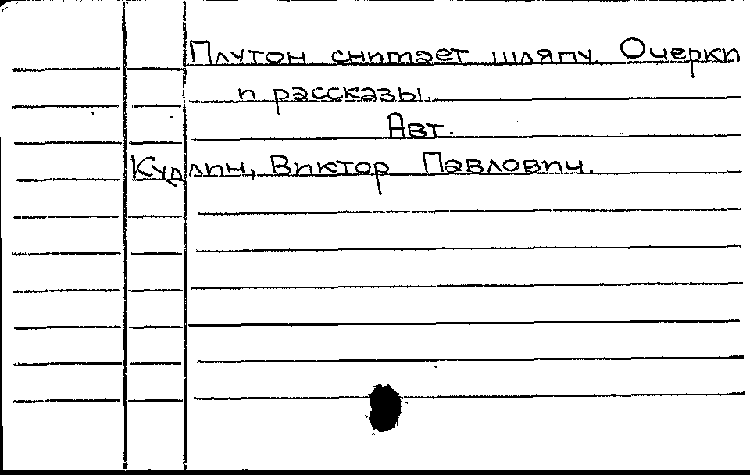 Плутон снимает шляпу. Очерки
и рассказы.
Авт.
Кудлин, Виктор Павлович.